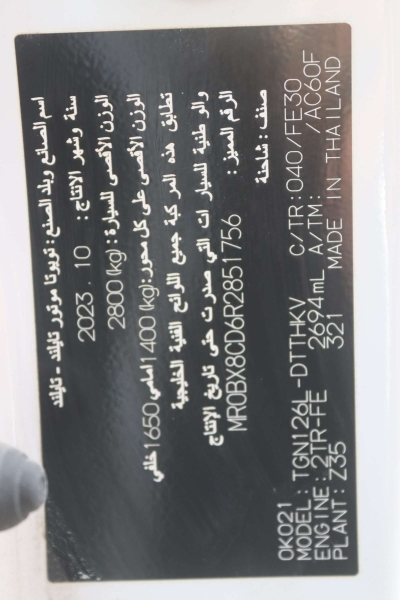 اسم الصانع وبلد الصنع: تويوتا موتور تايلند - تايلند
سنة وشهر الانتاج: 2023 . 10
الوزن الأقصى للسيارة: (kg) 2800
الوزن الأقصى على كل محور: (kg) 1400 أمامي 1650 خلفي
تطابق هذه المركبة جميع اللوائح الفنية الخليجية
والوطنية للسيارات التي صدرت حتى تاريخ الإنتاج
الرقم المميز: MR0BX8CD6R2851756
صنف: شاحنة
OK021
MODEL: TGN126L-DTTHKV C/TR: 040/FE30
ENGINE: 2TR-FE 2694mL A/TM: /AC60F
PLANT: Z35 321 MADE IN THAILAND